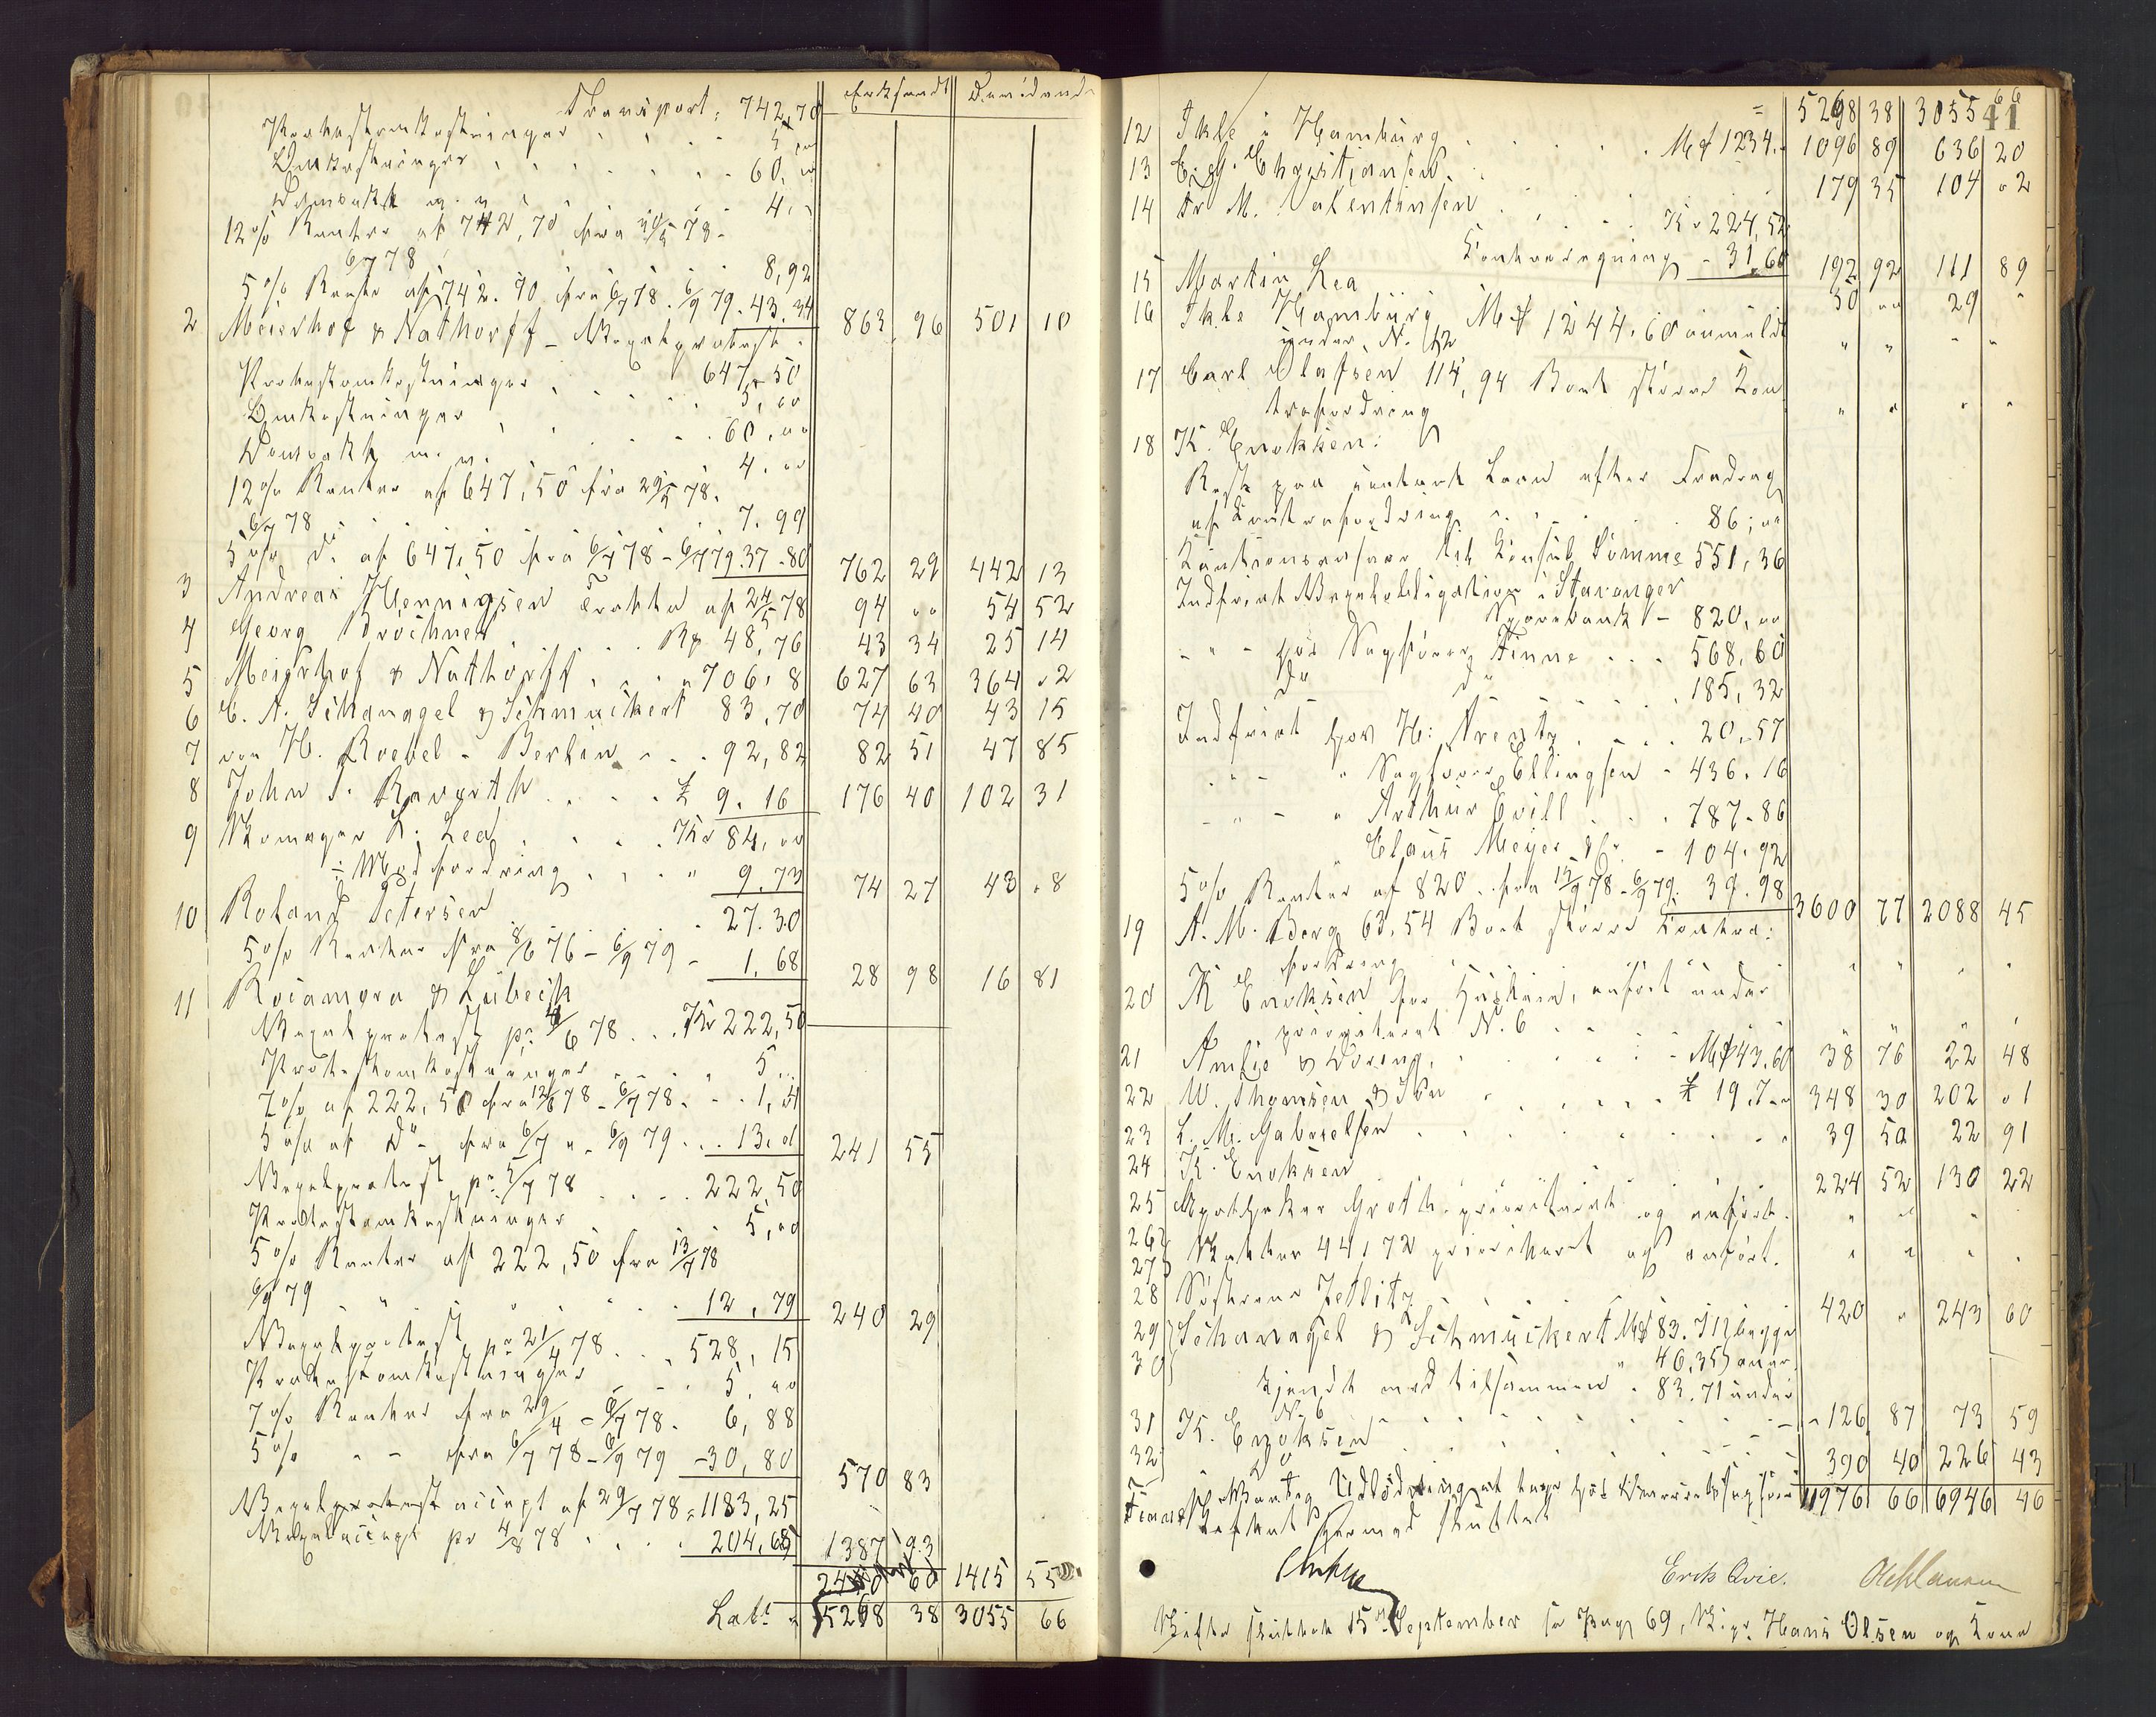 Erkjendt Dividende
Transport, 742,70
Protestomkostninger 5,00
Omkostninger 60,00
Vidimeret m. v. 4,
12% Renter af 742,70 fra 30/5 78 -
6/7 78 8,92
5% Renter af 742.70 fra 6/7 78. 6/9 79. 43.34
2 Meierhof & Nathorff - Vexelprotest 863 96 501 10
647,50
Protestomkostninger 5,00
Omkostninger 60,00
m. v. 4.00
12% Renter af 647,50 fra 29/5 78.
6/7 78 7.99
5% do af 647,50 fra 6/7 78 - 6/9 79. 37.80 762 29 442 13
3 Andreas Henningsen Tratta af 24/5 78 94 00 54 52
4 Georg Bröchner Rp 48,76 43 34 25 14
5 Meierhof & Nathorff " 706,8 627 63 364 02
6 C. A. Schanagel & Schmuckert 83,70 74 40 43 15
7 von H. Roebel - Berlin 92,82 82 51 47 85
8 John S. £ 9.16 176 40 102 31
9 Skomager R. Lea Kr 84,00
÷ Modfordring " 9.73 74 27 43 08
10 Roland Petersen 27.30
5% Renter fra 8/6 76 - 6/9 79 - 1,68 28 98 16 81
11 Rocamora & Lübeck
Vexelprotest pr. 4/6 78 Kr 222,50
Protestomkostninger 5...
7% af 222,50 fra 12/6 78 - 6/7 78 1,01
5% af Do - fra 6/7 " - 6/9 79 13.01 241 55
Vexelprotest pr. 5/7 78 222,50
Protestomkostninger 5,00
5% Renter af 222,50 fra 13/7 78
6/9 79 " 12,79 240 29
Vexelprotest pr 21/4 78 528,15
Protestomkostninger 5,00
7% Renter fra 29/4 - 6/7 78. 6,88
5% " - fra 6/7 78 - 6/9 79 - 30,80 570 83
Vexelprotest accept af 29/7 78 = 1183,25
Vexelaccept pr 4/8 78 204,68 1387 93
2440 60 1415 55
Lat: 5268 38 3055 66
41
= 5268 38 3055 66
12 Ikle i Hamburg M# 1234.- 1096 89 636 20
13 E. G. Christiansen 179 35 104 02
14 Fr. M. Valentinsen Kr 224,52
Kontraregning - 31,60 192 92 111 89
15 Martin Lea 50 00 29 "
16 Ikle Hamburg M# 1244.60 anmeldt
under N. 12 " " " "
17 Carl Olafsen 114,94 Bort større Kon
trafordring " " " "
18 K. Enoksen:
Rest paa kontant Laan efter Fradrag
af Kontrafordring 86,00
Kautionsansvar til Konsul Sømme 551,36
Indfriet Vexelobligation i Stavanger
Sparebank - 820,00
- " - hos Sagfører Finne 568,60
do do 185,32
Indfriet hos H: Arentz 20,57
- " - " Sagfører Ellingsen - 436.16
- " - " Arthur Evill 787.86
" Claus Meyer - 104.92
5% Renter af 820.. fra 15/9 78 - 6/9 79. 39.98 3600 77 2088 45
19 A. M. Berg 63.54 Bort større Kontra:
fordring " " " "
20 K Enoksen for Husleie, anført under
prioriteret N. 6 " " " "
21 Amsie & Døring, M# 43.60 38 76 22 48
22 W. Thomsen & Søn £ 19.7.. 348 30 202 01
23 L. M. Gabrielsen 39 50 22 91
24 K. Enoksen 224 52 130 22
25 Apotheker Groth - prioriteret og anført. " " "
26 } Skatter 44,72 prioriteret og anført. " " " "
27
28 Søstrene Zetlitz 420 " 243 60
29 } Schanagel & Schmuckert M# 83.71 } begge
30 46,35 } aner
kjendt med tilsammen " 83.71 under
N. 6 - 126 87 73 59
31 K. Enoksen
32 Do 390 40 226 43
11976 66 6946 46
Udlodning at tage hos Overretssagfører
Finne. Boet hermed sluttet
Erik Qvie. O Clausen
Skifte sluttet 15de September se Pag 69, Hans Olsen og Kone